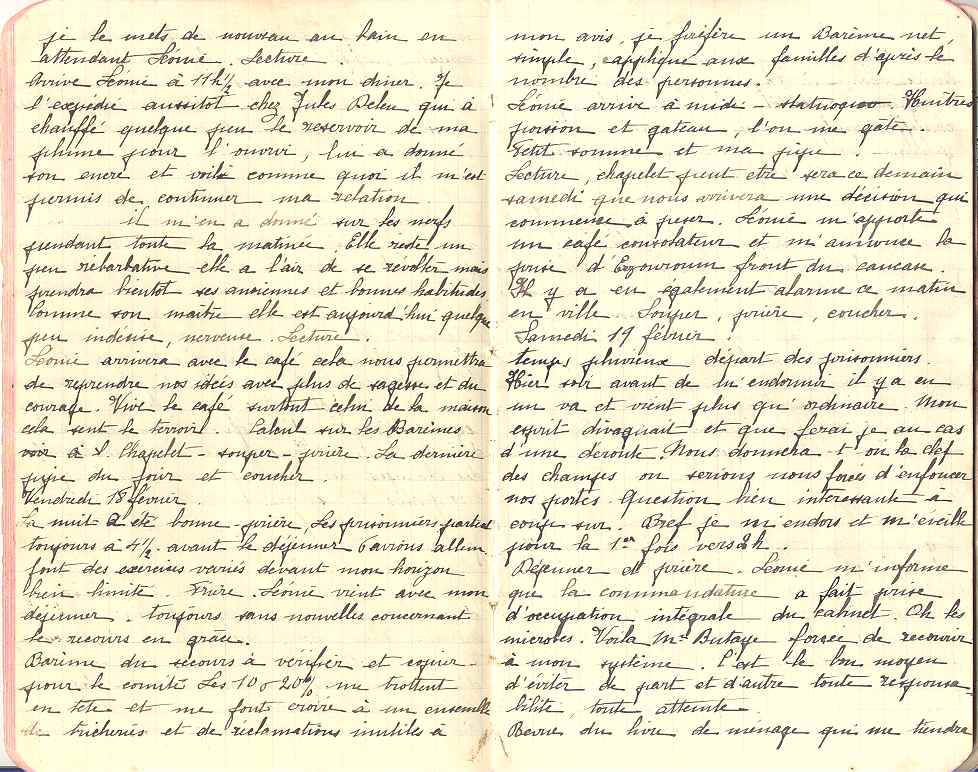 je le mets de nouveau au bain en
attendant Léonie. Lecture.
Arrive Léonie à 11h½ avec mon diner. Je
l'expédie aussitot chez Jules Deleu qui à
chauffé quelque peu le reservoir de ma
plume pour l'ouvrir, lui a donné
son encre et voila comme quoi il m'est
permis de continuer ma relation.
il m'en a donné sur les nerfs
pendant toute la matinée. Elle reste un
peu rébarbative elle a l'air de se révolter mais
prendra bientot ses anciennes et bonnes habitudes
Comme son maitre elle est aujourd'hui quelque
peu indécise, nerveuse. Lecture.
Léonie arrivera avec le café cela nous permettra
de reprendre nos idées avec plus de sagesse et du
courage. Vive le café surtout celui de la maison
cela sent le terroir. Calcul sur les Barêmes
voir à S. Chapelet - souper - prière. La dernière
pipe du jour et coucher.
Vendredi 18 février.
La nuit a été bonne - prière, Les prisonniers partent
toujours à 4½. avant le déjeuner 6 avions allem.
font des exercices variés devant mon horizon
bien limité. Prière. Léonie vient avec mon
déjeuner. toujours sans nouvelles concernant
le recours en grace.
Barême du secours à vérifier et copier
pour le comité Les 10 o 20% me trottent
en tête et me font croire à un ensemble
de tricheries et de réclamations inutiles à
mon avis, je préfère un Barême net,
simple, applique aux familles d'après le
nombre des personnes.
Léonie arrive à midi - statuoquo. Huitres
poisson et gateau, l'on me gâte.
Petit somme et ma pipe.
Lecture, chapelet peut etre sera ce demain
samedi que nous arrivera une décision qui
commence à peser. Léonie m'apporte
un café consolateur et m'annonce la
prise d'Erzouroum front du caucase.
Il y a eu egalement alarme ce matin
en ville. Souper, prière, coucher.
Samedi 19 février.
temps pluvieux départ des prisonniers.
Hier soir avant de m'endormir il y a eu
un va et vient plus qu'ordinaire. Mon
esprit divaguait et que ferai je au cas
d'une déroute. Nous donnera-t-on la clef
des champs ou serions nous forcés d'enfoncer
nos portes. Question bien interessante à
coup sur. Bref je m'endors et m'éveille
pour la 1er fois vers 2h.
Déjeuner et prière. Léonie m'informe
que la commandature a fait prise
d'occupation intégrale du cabinet. Oh les
microbes. Voila Mr Butaye forcée de recourir
à mon système. C'est le bon moyen
d'éviter de part et d'autre toute responsa-
bilité, toute atteinte.
Revue du livre de ménage qui me tiendra